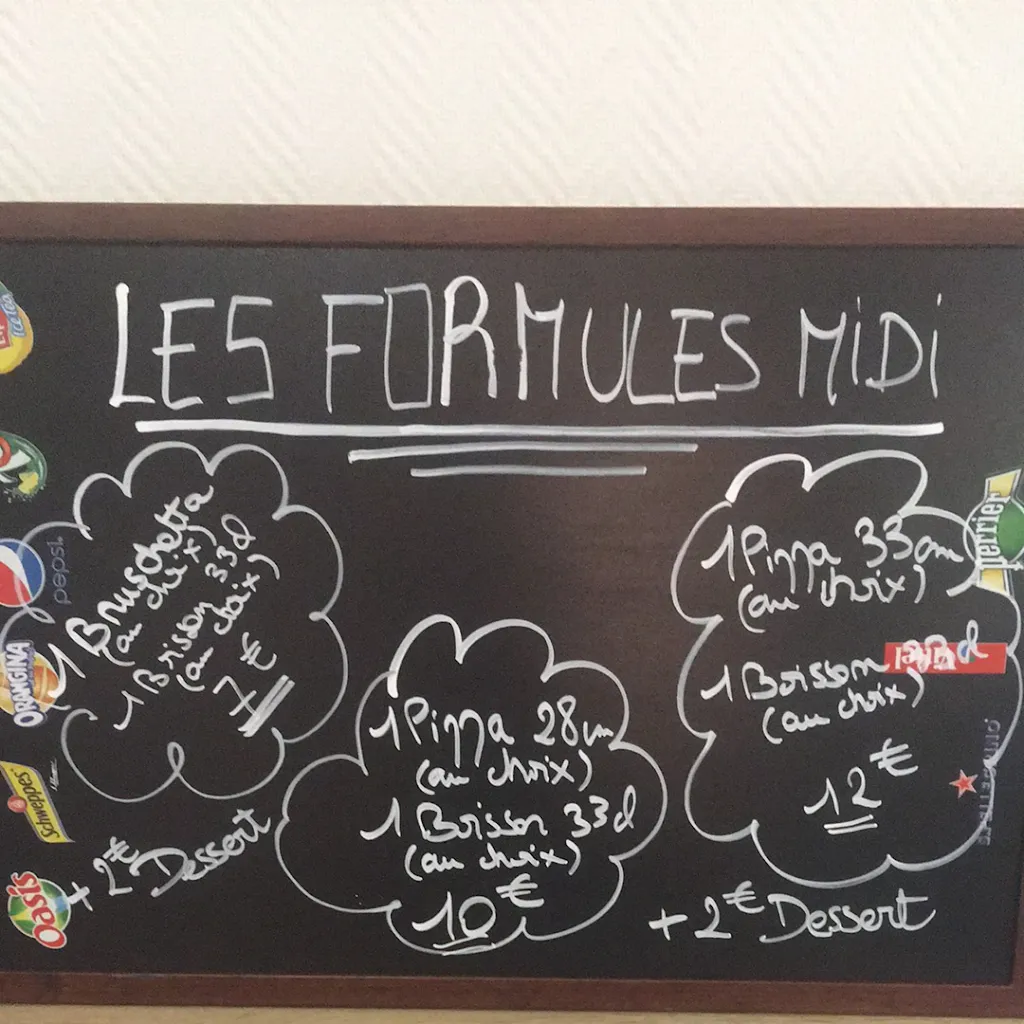 LES FORMULES MIDI
1 Bruschetta
(au choix)
1 Boisson 33cl
(au choix)
7€
+ 2€ Dessert
1 Pizza 28cm
(au choix)
1 Boisson 33cl
(au choix)
10€
1 Pizza 33cm
(au choix)
1 Boisson 33cl
(au choix)
12€
+ 2€ Dessert
Ice Tea
pepsi
ORANGINA
Schweppes
Oasis
perrier
Vittel